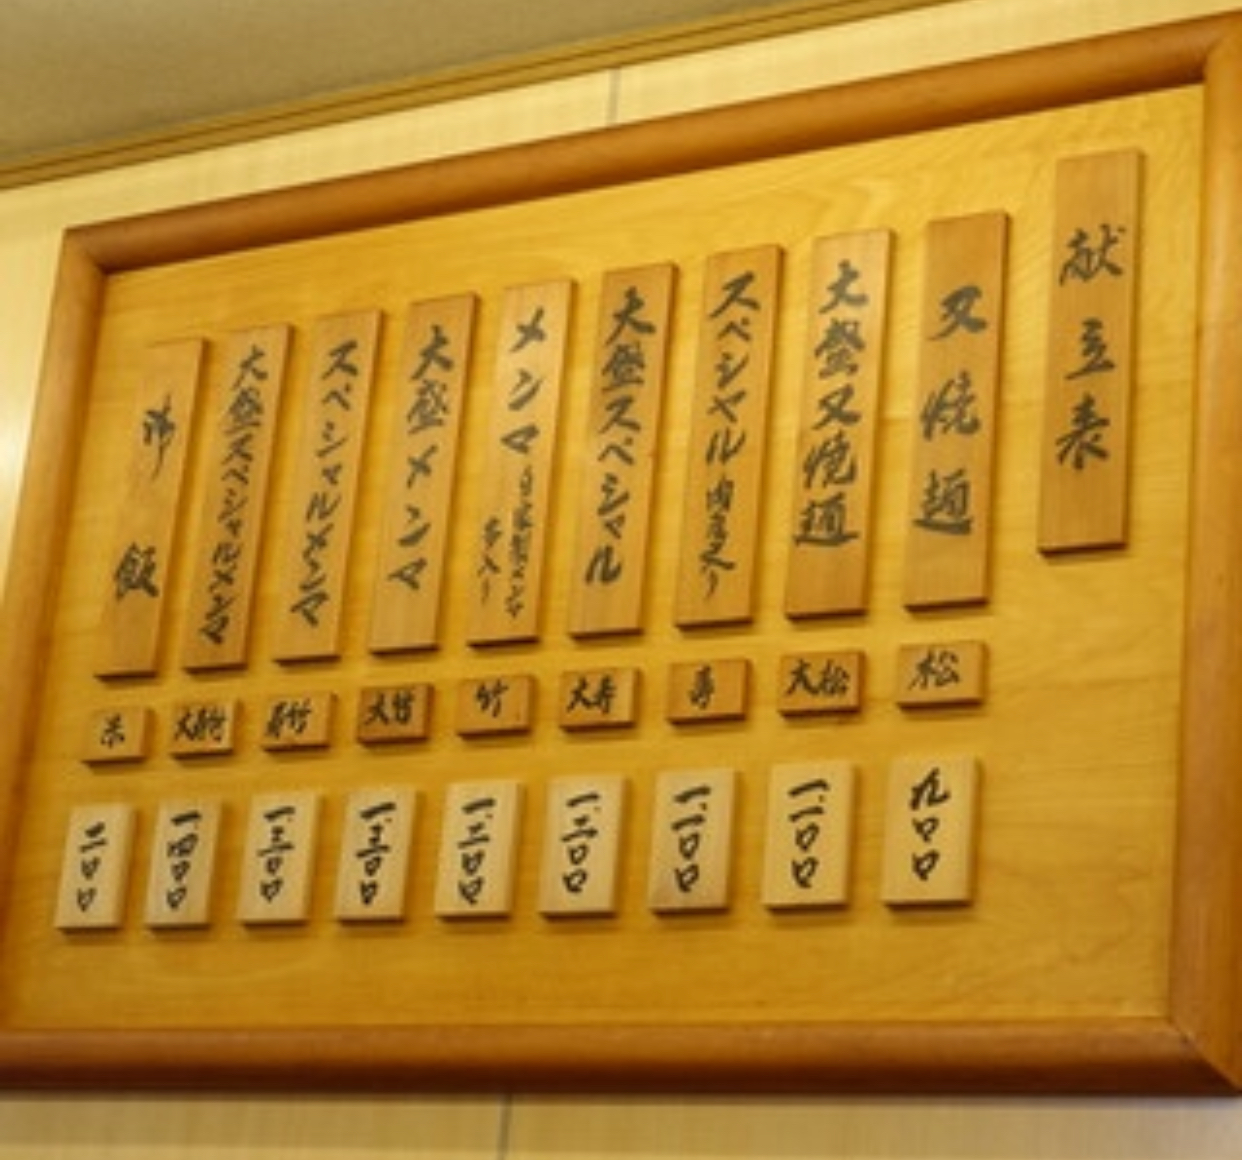 献立表
叉焼麺
松
九〇〇
大盛叉焼麺
大松
一、一〇〇
スペシャル
寿
一、一〇〇
大盛スペシャル
大寿
一、二〇〇
メンマ
竹
一、二〇〇
大盛メンマ
大竹
一、三〇〇
スペシャルメンマ
寿竹
一、三〇〇
大盛スペシャルメンマ
大寿竹
一、四〇〇
御飯
米
二〇〇